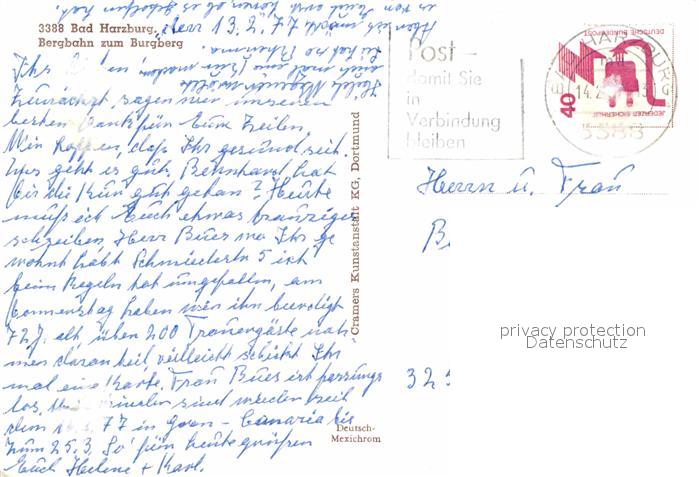 3388 Bad Harzburg,
Bergbahn zum Burgberg
den 13.2.77
Ihr
Zunächst sagen wir unseren
besten Dank für Eure Zeilen.
Wir hoffen, dass Ihr gesund seit.
Uns geht es gut. Bernhard hat
Dir die Kur gut getan? Heute
muß ich Euch etwas trauriges
schreiben, Herr Bues wo Ihr ge
wohnt habt Schmiedestr 5 ist
beim Kegeln tot umgefallen, am
Donnerstag haben wir ihn beerdigt
72 J. alt, über 200 Trauergäste nah-
men daran teil, vielleicht schickt Ihr
mal eine Karte. Frau Bues ist fassungs
los. kinder sind wieder seit
dem 77 in Gran-Canaria bis
zum 25.3. So für heute grüßen
Euch Helene + Karl.
Cramers Kunstanstalt KG, Dortmund
Deutsch-
Mexichrom
Post-
damit Sie
in
Verbindung
bleiben
BAD HARZBURG
14.2
3388
DEUTSCHE BUNDESPOST
JEDERZEIT SICHERHEIT
40
Herrn u. Frau
B.
32
privacy protection
Datenschutz